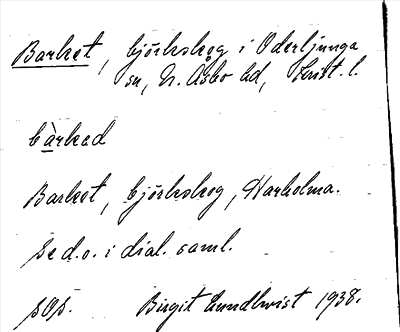 Barket, björkskog i Oderljunga
sn, N. Åsbo hd, Krist. l.
bàrked
Barket, björkskog, Harholma.
Se d.o. i dial. saml.
SOS. Birgit Lundkvist 1938.